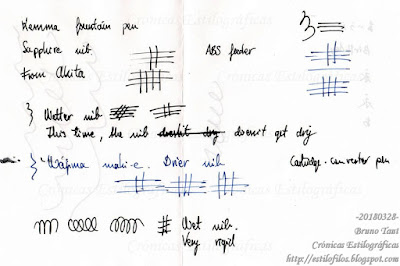 Kemma fountain pen
Sapphire nib
From Akita
ABS feeder
Crónicas Estilográficas
Wetter nib
This time, the nib doesn't dry doesn't get dry
"Wajima maki-e. Drier nib
Cartridge-converter pen
Wet nib.
Very rigid
-20180328-
Bruno Taut
Crónicas Estilográficas
http://estilofilos.blogspot.com